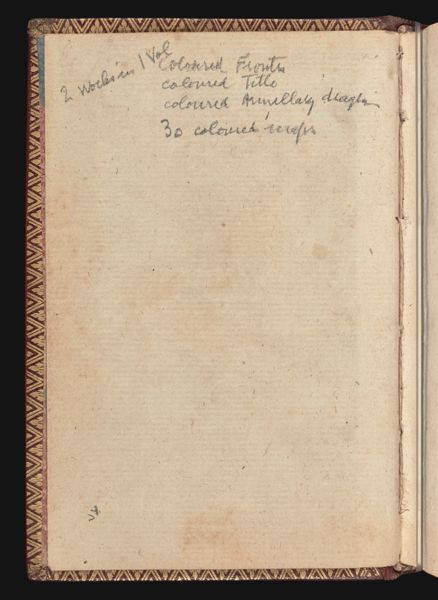 2 works in 1 Vol
Coloured Frontis
coloured Title
coloured Armillary diagm
30 coloured maps